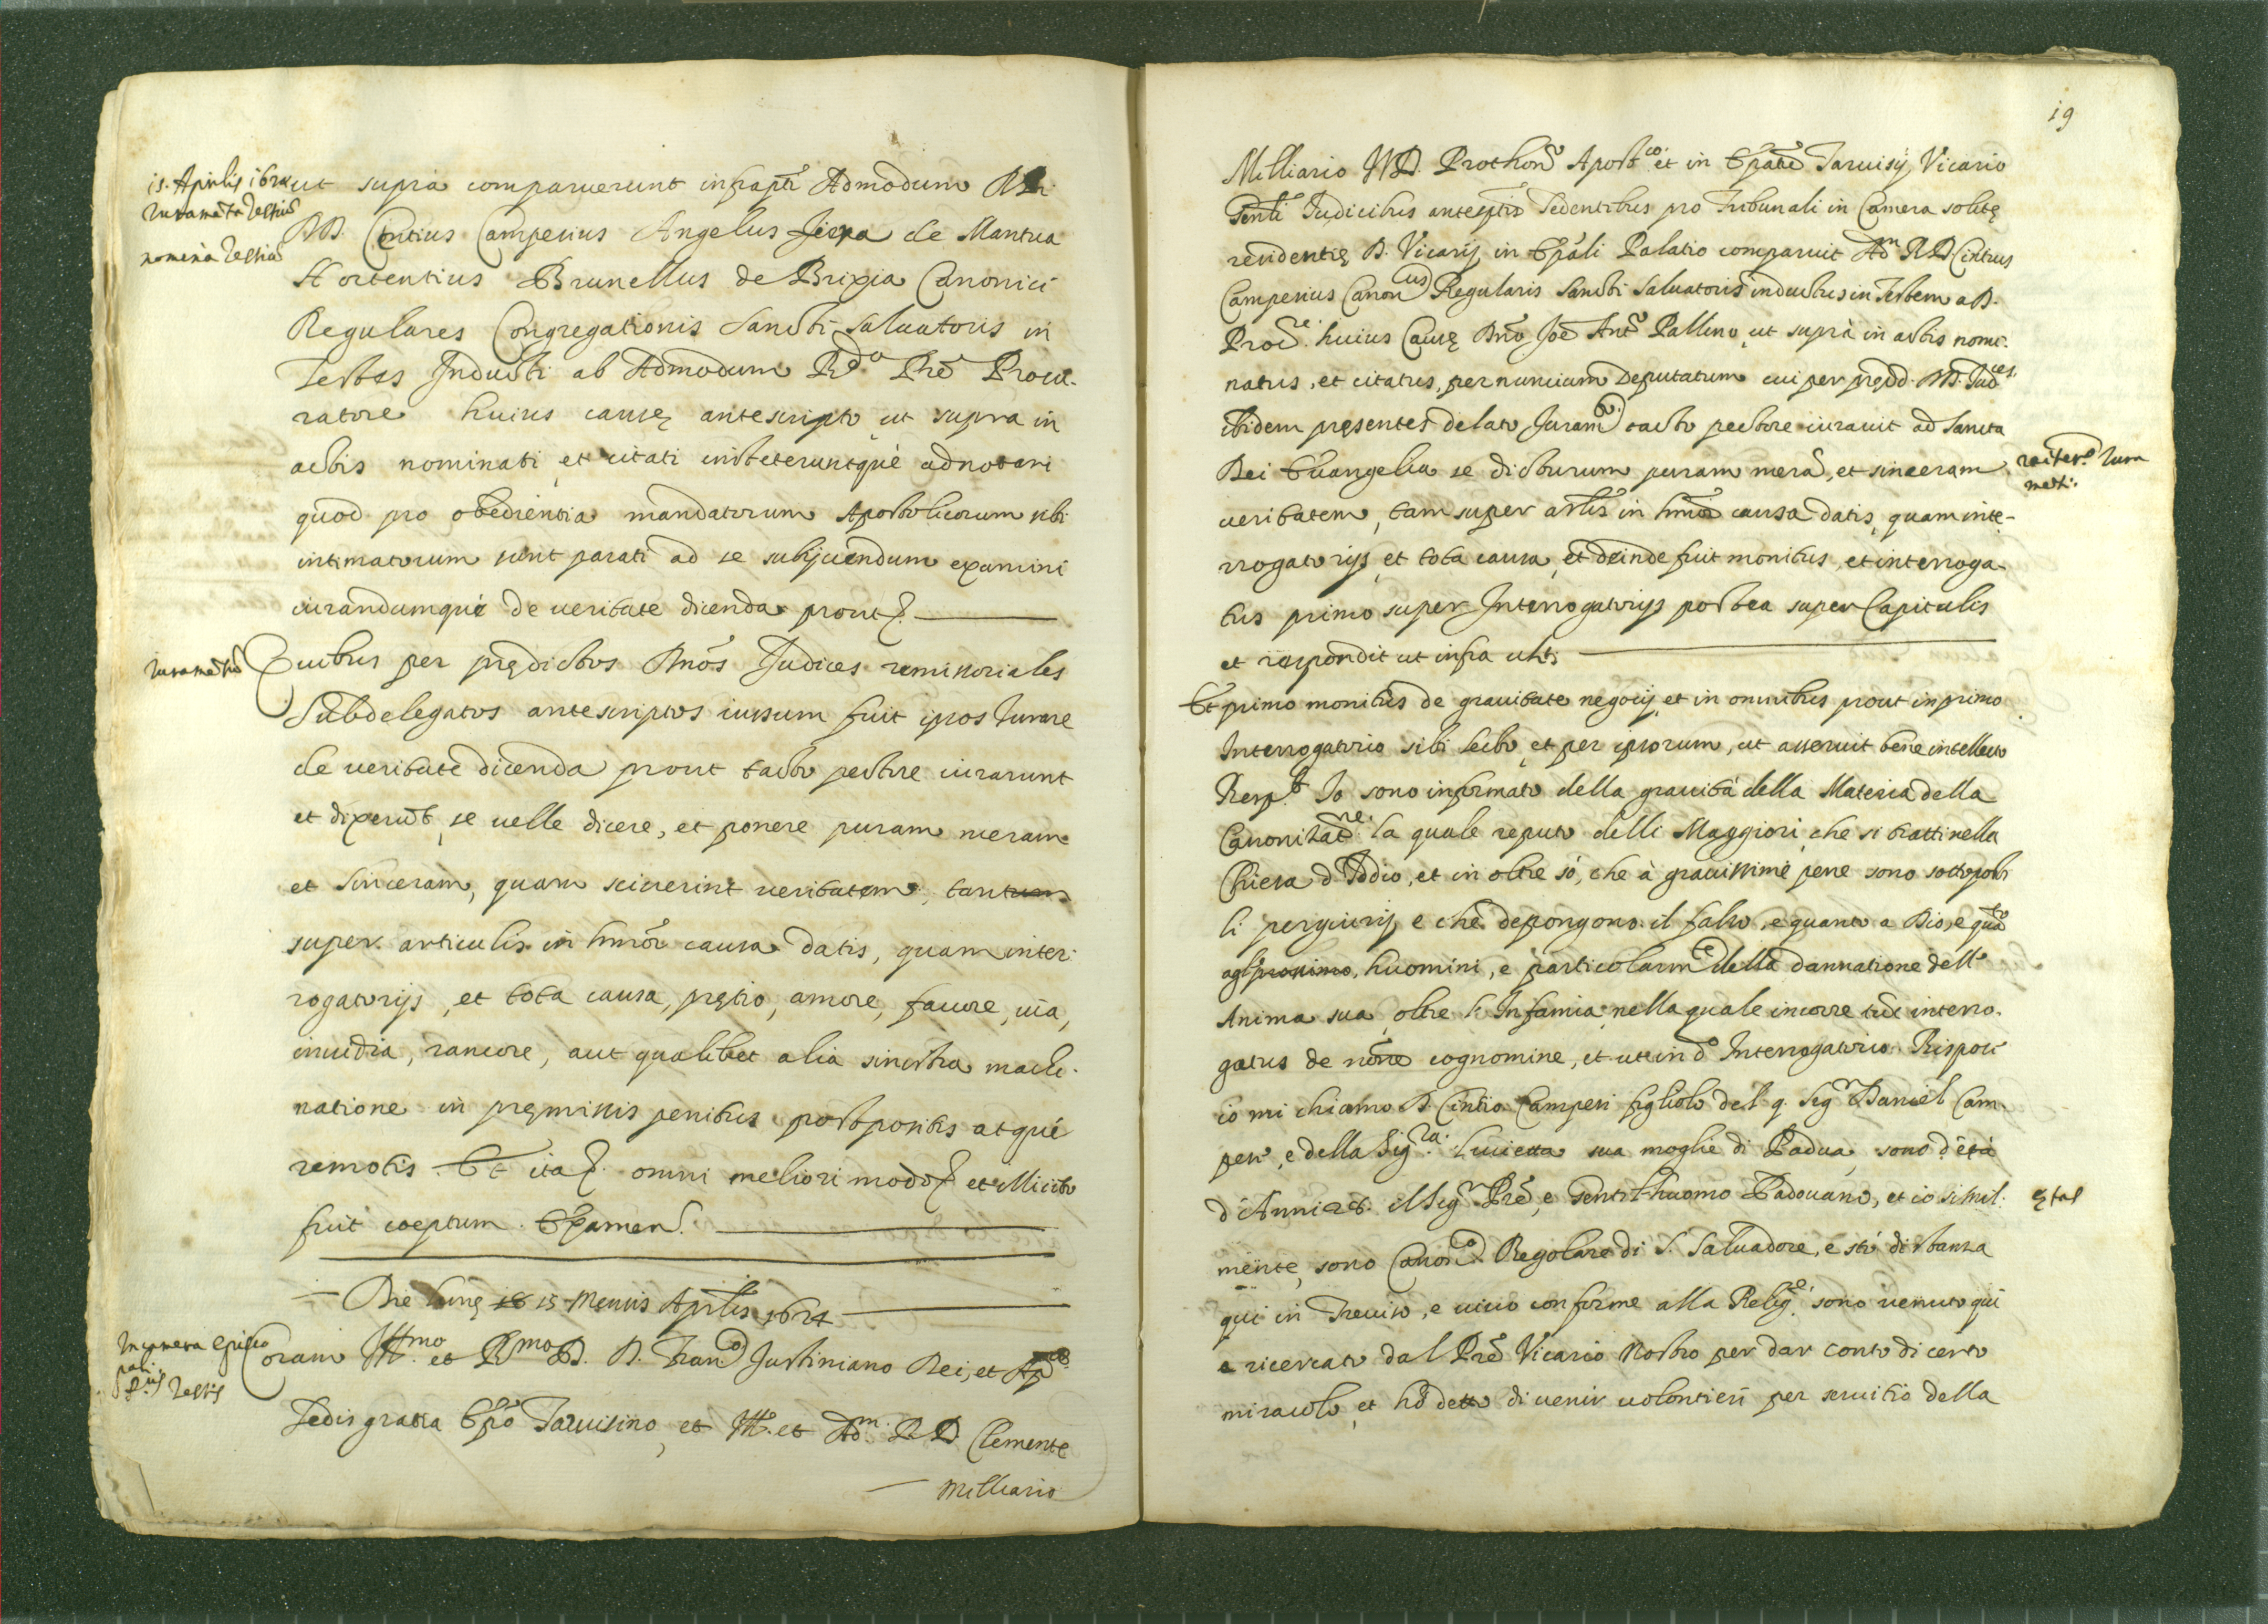 is. Aprilis 1624
Iuramēta Testiū
nomina Testiū
ut supra comparuerunt infrapti Admodum RR.
DD. Cintius Camperius Angelus de Mantua
Hortentius Brunellus de Brixia Canonici
Regulares Congregationis Sancti Saluatoris in
Testes Inducti ab Admodum Rdo Prē Procu-
ratore huius causę antescripto ut supra in
actis nominati et citati institeruntque adnotari
quod pro obedientia mandatorum Apostolicorum sibi
intimatorum sunt parati ad se subijciendum examini
iurandumque de ueritate dicenda prout
Iuramētū
Quibus per prędictos Dnos Iudices remissoriales
Subdelegatos antescriptos iussum fuit ipsos Iurare
de ueritate dicenda prout tacto pectore iurarunt
et dixerūt se uelle dicere, et ponere puram meram
et sinceram, quam sciuerint ueritatem, tantum
super articulis in hmōi causa datis, quam inter-
rogatorijs, et tota causa, pretio, amore, fauore, ira,
inuidia, rancore, aut qualibet alia sinistra machi-
natione in pręmissis penitus postpositis atque
remotis. Et ita omni meliori modo et illicito
fuit coeptum Examen.
Die lunę 18 15 Mensis Aprilis 1624
In camera episco
pali
pus Testis
Coram Illmo et Rmo D. D. Franco Iustiniano Dei, et Apcę
Sedis gratia Epō Taruisino, et Ill. et Adm. R. D. Clemente
Milliario
19
Milliario IVD. Prothonō Apostco. et in Epātu Taruisij Vicario
Genli Iudicibus antesptis Sedentibus pro Tribunali in Camera solitę
residentię D. Vicarij in Epāli Palatio comparuit Adm R D Cintius
Camperius Canonicus Regularis Sancti Saluatoris inductus in Testem a D.
Procre. huius Causę Dnō Joe Antō Pallino, ut supra in actis nomi-
natus, et citatus, per nuncium Deputatum cui per prędd. DD. Iudces.
ibidem pręsentes delato Iuramto. tacto pectore iurauit ad Sancta
Dei Euangelia se dicturum puram merā, et sinceram
reiterō Iura
mēti.
ueritatem, tam super artlis in hmōi causa datis, quam inte-
rrogatorijs, et tota causa, et deinde fuit monitus, et interroga-
tus primo super Interrogatorijs postea super Capitulis
et respondit ut infra uhti
Et primo monitus de grauitate negotij et in omnibus prout in primo
Interrogatorio sibi lecto, et per ipsorum, ut asseruit bene intellecto
Respt Io sono informato della grauità della Materia della
Canonizatne. la quale reputo delli Maggiori che si tratti nella
Chiesa d'Iddio, et in oltre sò, che à grauissime pene sono sottoposti
li pergiurij e che depongono il falso, e quanto a Dio, e quāto
agl'prossimo, huomini, e particolarmte della dannatione dell'
Anima sua, oltre l'Infamia nella quale incorre tūc interro-
gatus de nōne cognomine, et ut in dō Interrogatorio. Rispose
io mi chiamo D. Cintio Camperi figliolo del q. Sigr Daniel Cam-
peri, e della Sigra. Lucietta sua moglie di Padua, sono d'età
d'Anni 28. il Sigr Prē, e Gentilhuomo Padouano, et io simil-
ętas
mente, sono Canonco Regolare di S. Saluadore, e stò di stanza
qui in Treuiso, e uiuo conforme alla Religne. sono uenuto quì
e ricercato dal Prē Vicario Nostro per dar conto di certo
miracolo, et hò detto di uenir uolontieri per seruitio della